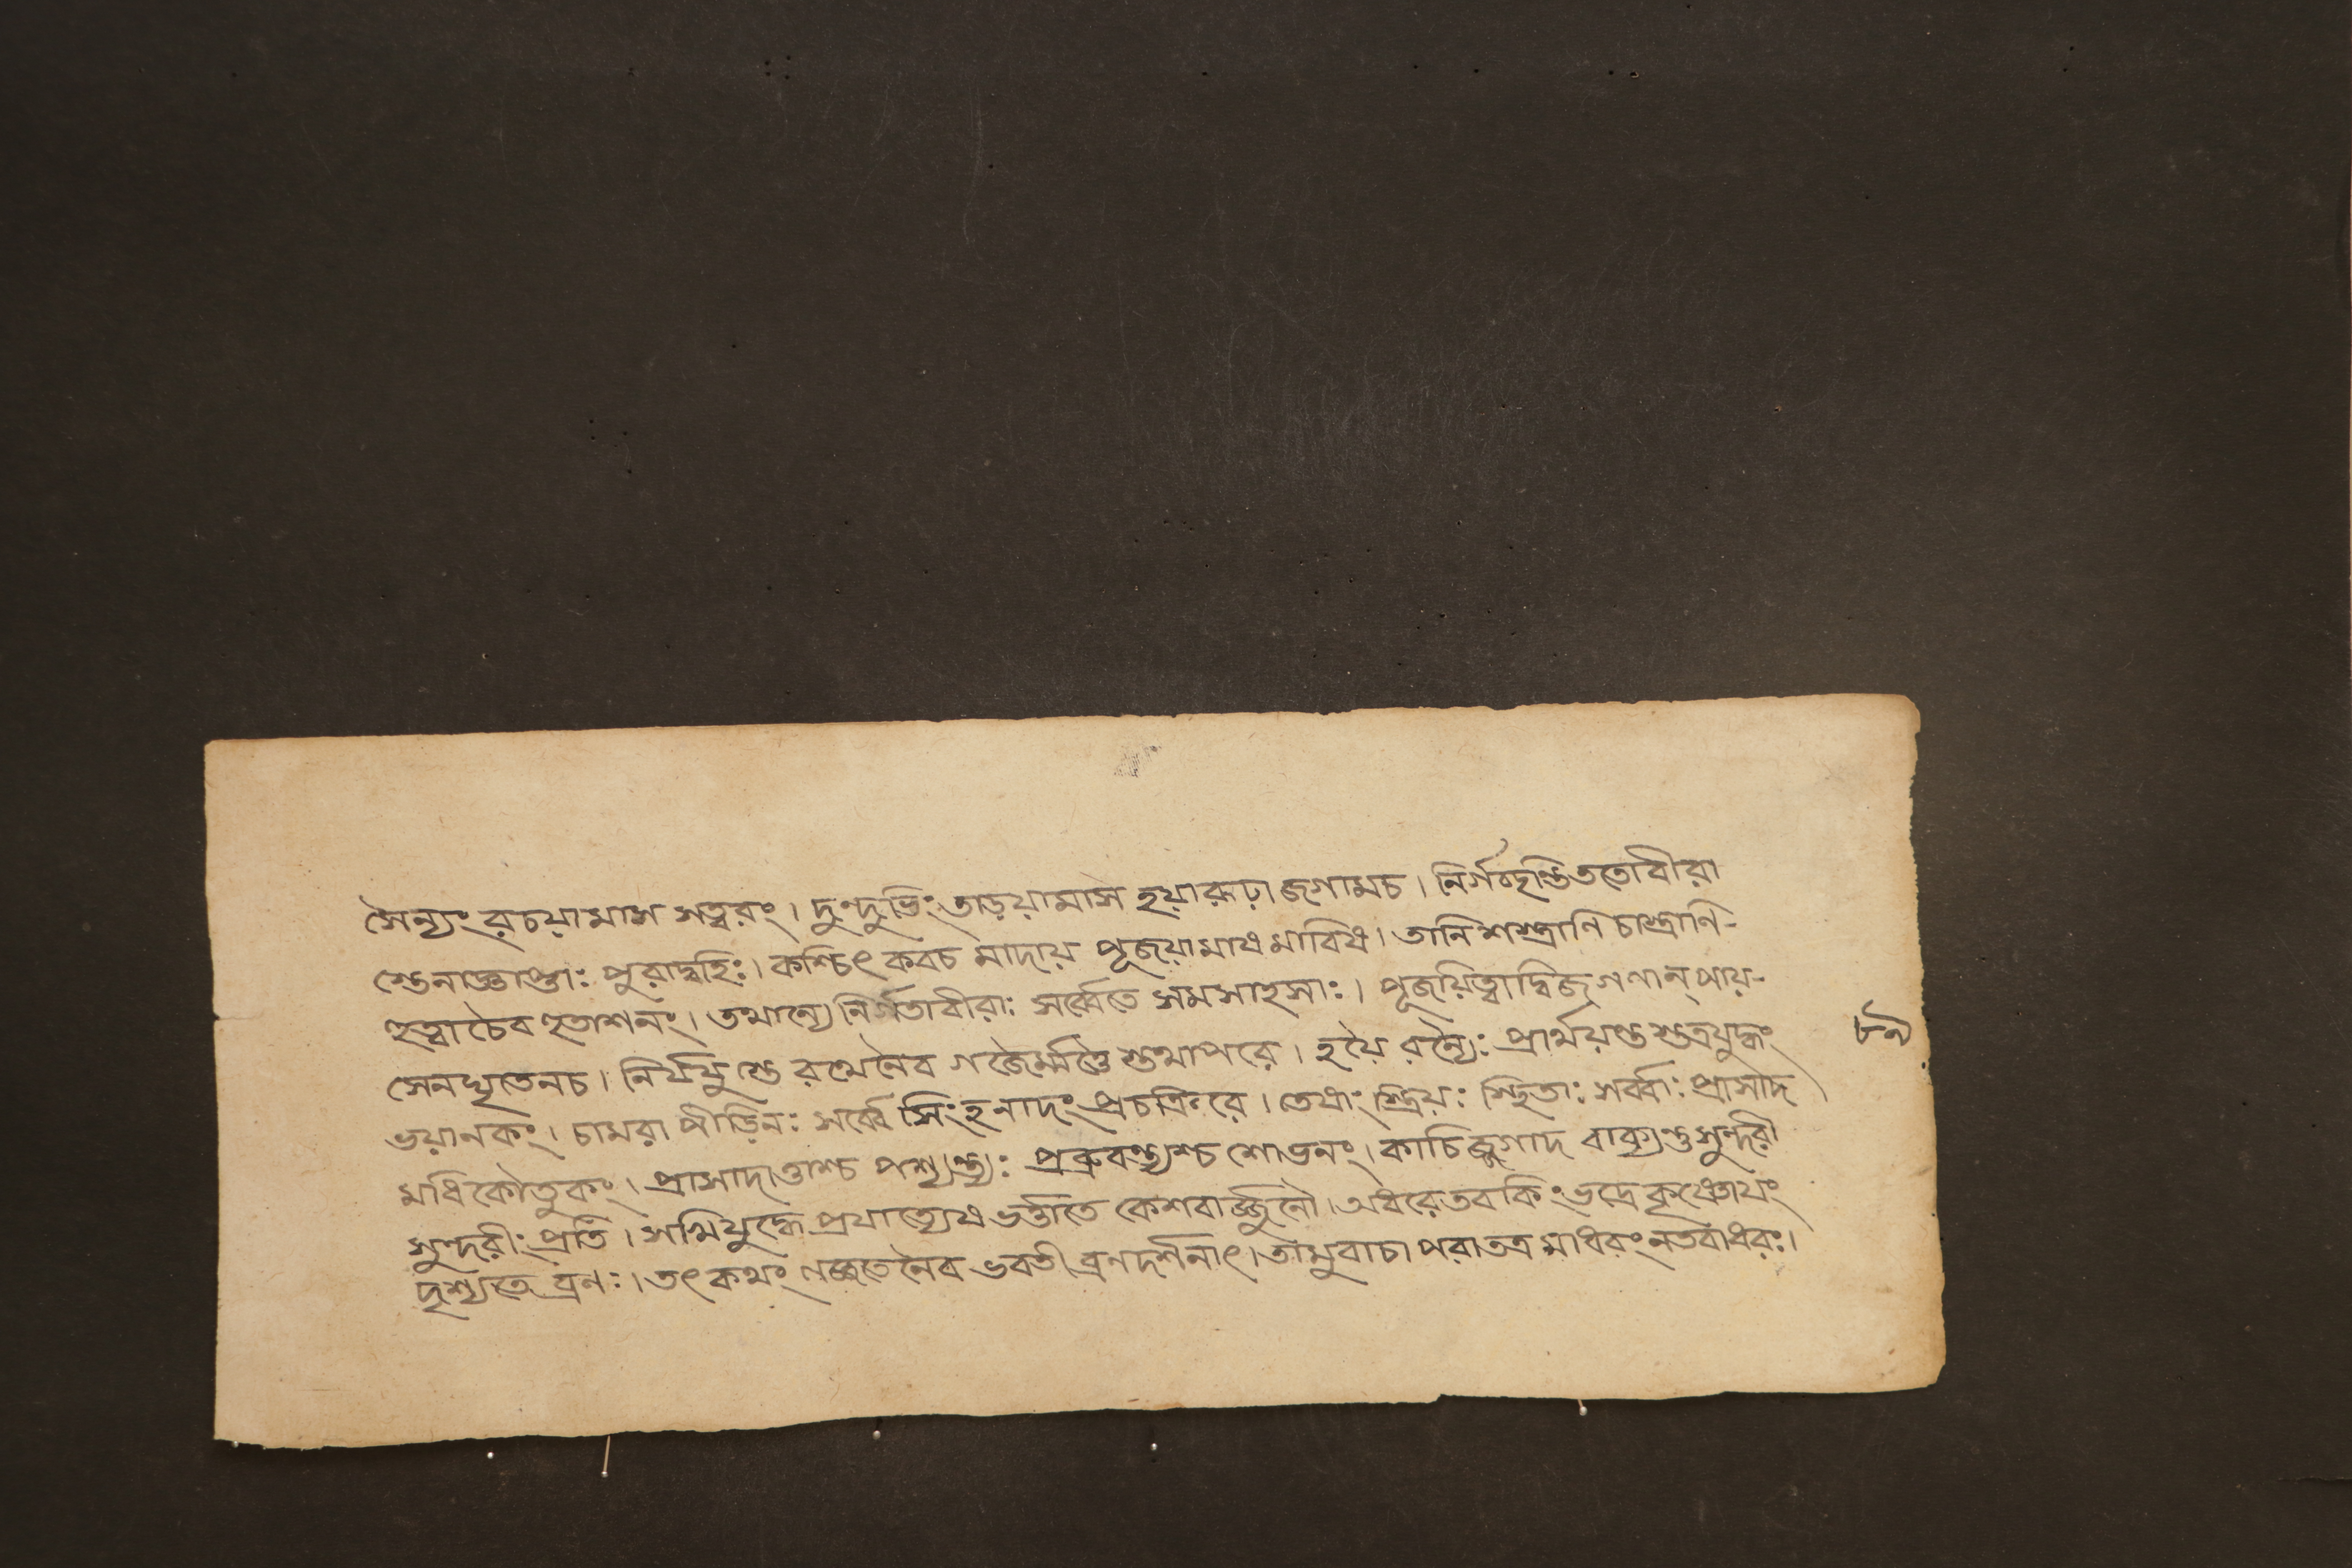 সৈন্যং রচয়ামাস সত্বরং। দুন্দুভিং তাড়য়ামাস হয়ারূঢ়া জগামচ। নির্গ ততোবীরা
স্তেনাজ্ঞাপ্তাঃ পুরাদ্বহিঃ। কশ্চিৎ কবচ মাদায় পূজয়ামাষ মাবিষ। তানি শস্ত্রাণি চাস্ত্রাণি-
হুত্বাচৈব হুতাশনং। তথান্যে নির্গতাবীরাঃ সর্ব্বেতে সমসাহসাঃ। পূজয়িত্বাদ্বিজগণান্ পায়-
সেনঘৃতেনচ। নির্যযুস্তে রথেনৈব গজৈর্ম্মত্তৈ স্তথাপরে। হয়ৈ রন্যৈঃ প্রার্থয়ন্ত স্তত্রযুদ্ধং
ভয়ানকং। চামরা পীড়িনঃ সর্ব্বে সিংহনাদং প্রচক্রিরে। তেষাং স্ত্রিয়ঃ স্থিতাঃ সর্ব্বাঃ প্রাসাদ
মধিকৌতুকং। প্রাসাদাত্তাশ্চ পশ্যন্ত্যঃ প্রব্রুবন্ত্যশ্চ শোভনং। কাচিজ্জগাদ বাক্যন্তু সুন্দরী
সুন্দরীং প্রতি। সখিযুদ্ধে প্রযাত্যেষ ভর্ত্তাতে কেশবার্জ্জুনৌ। অধরেতব কিং ভদ্রে কৃষ্ণোয়ং
দৃশ্যতে ব্রণঃ। তৎ কথং লজ্জতে নৈব ভবতী ব্রণদর্শনাৎ। তামুবাচা পরাতত্র মাধরং নতবাধরঃ।
৮৯